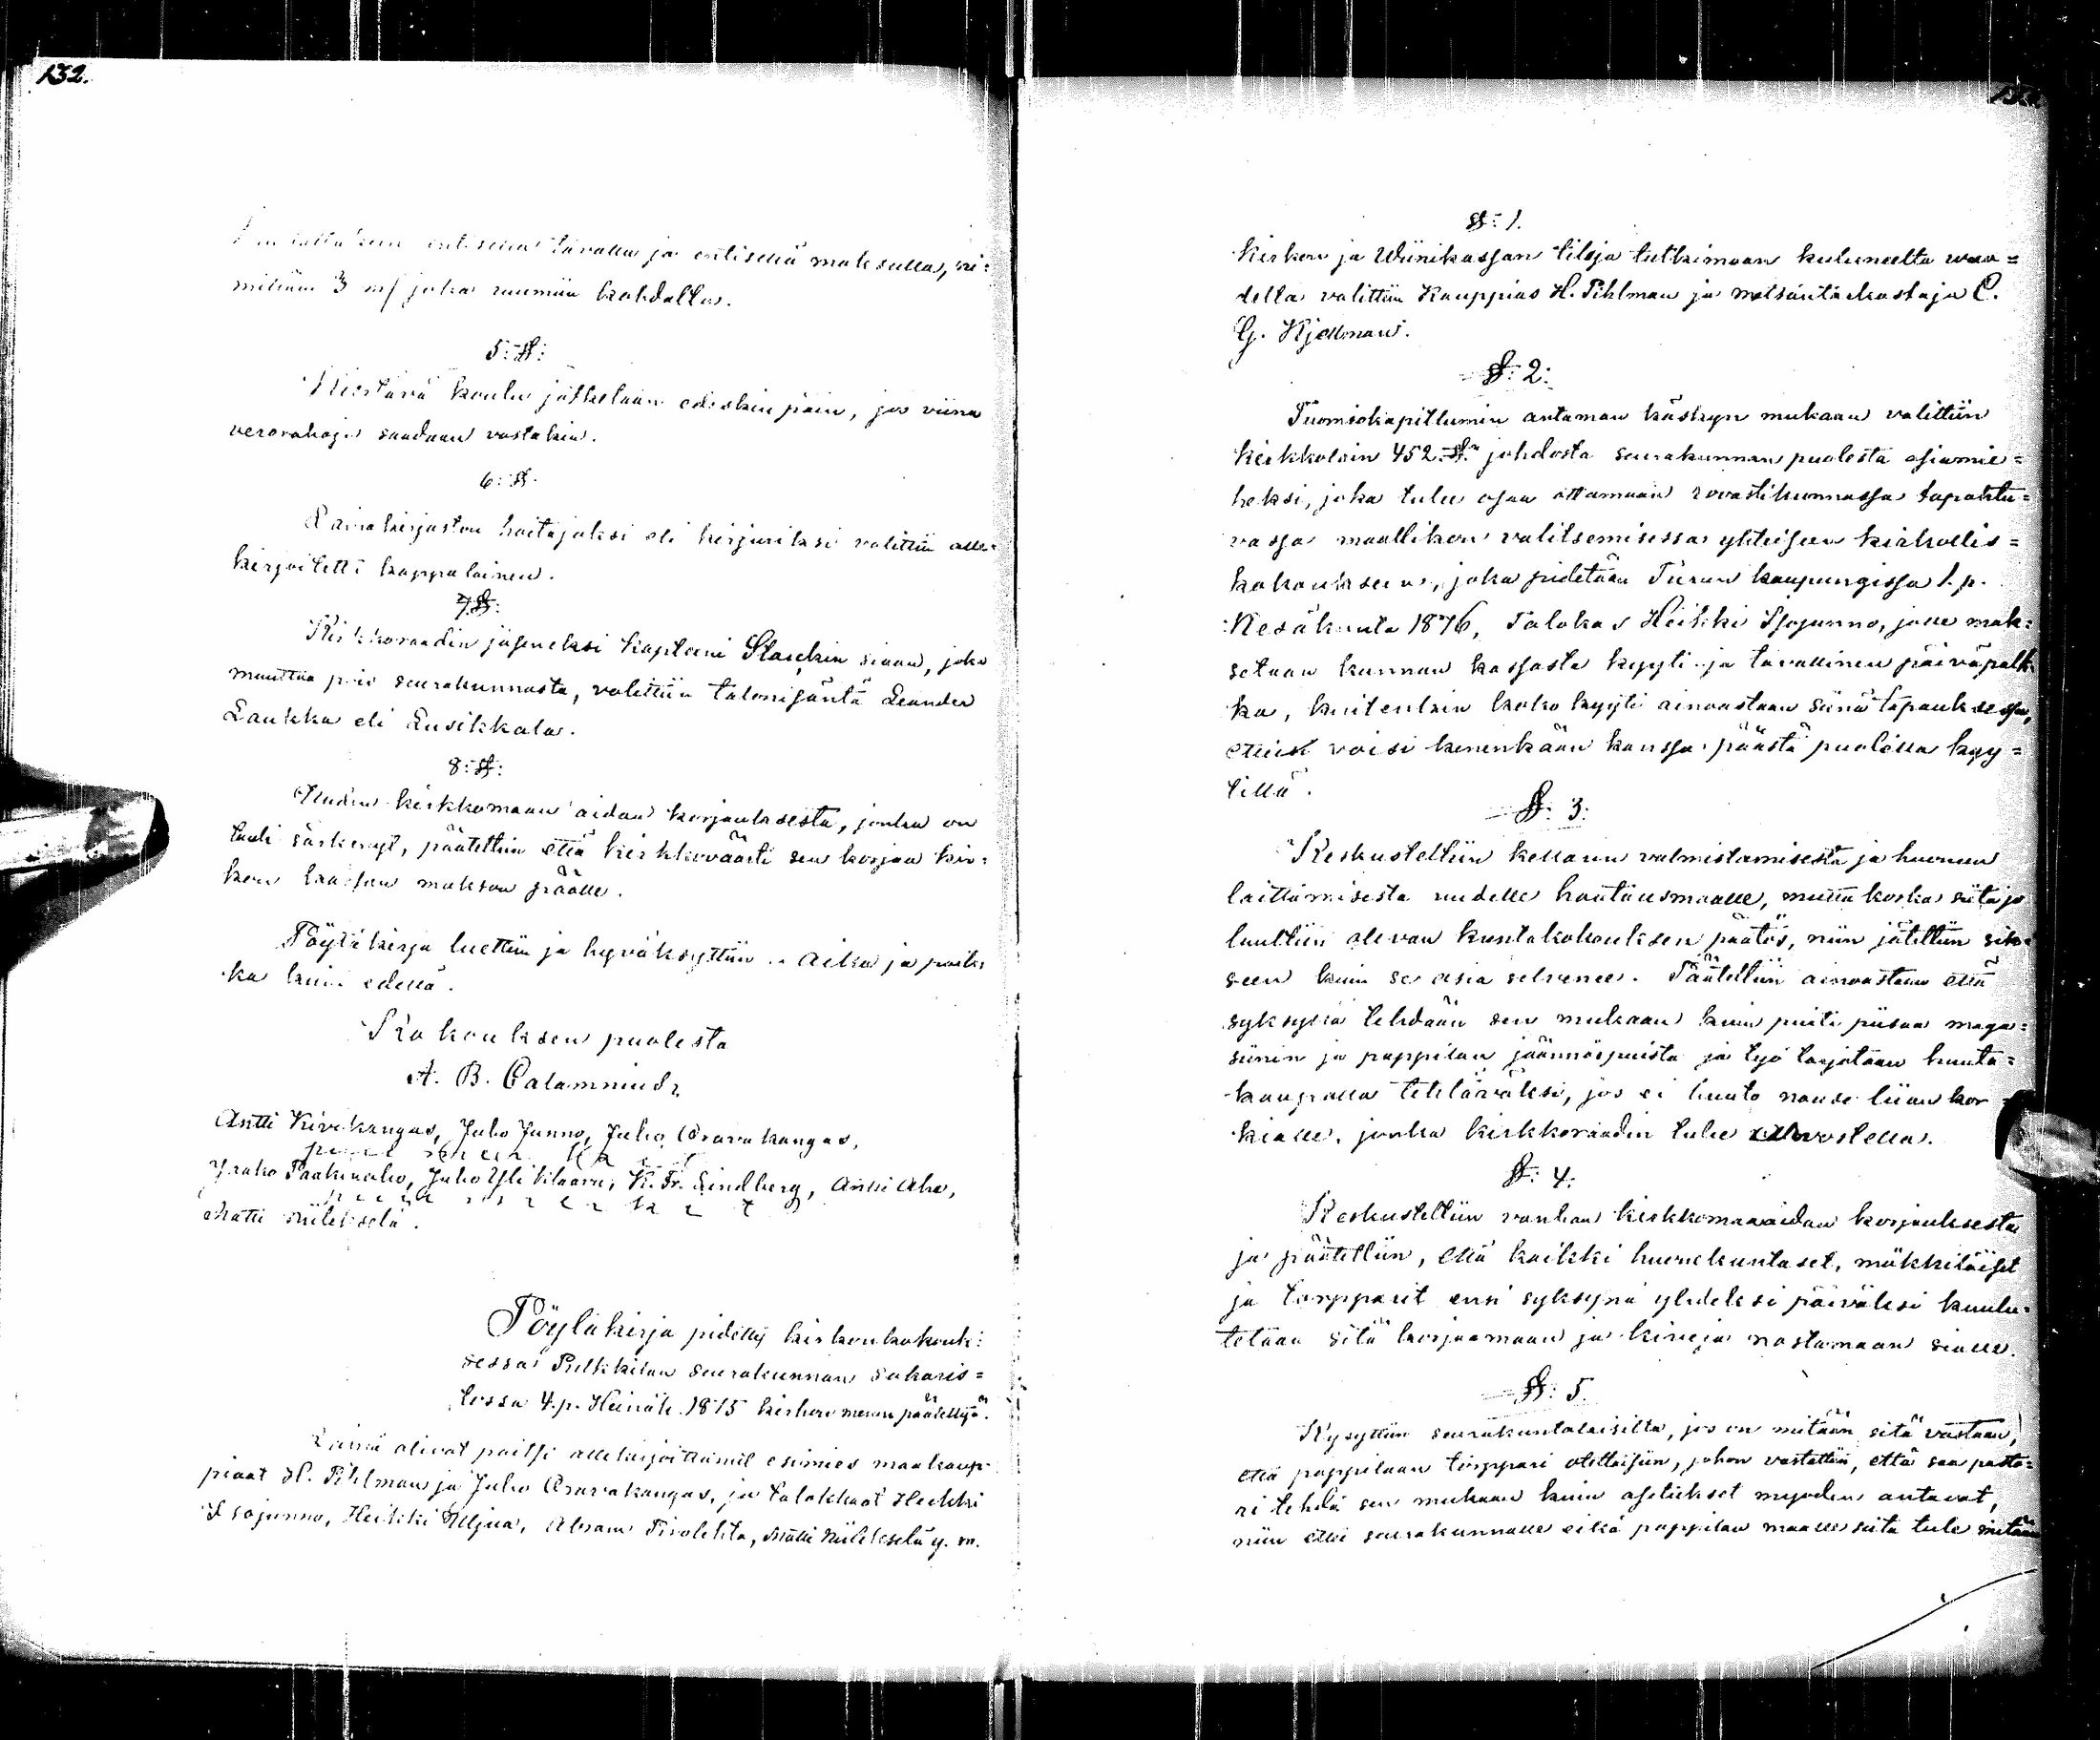 132.
entisellä tavalla ja entisellä maksulla, ni=
mittäin 3 mf joka ruumiin kohdalta.
5: §:
Kiertävä koulu jatketaan edeskin päin, jos viina
verorahoja saadaan vastakin.
6: §.
Lainakirjaston hoitajaksi eli kirjuriksi valittiin alle=
kirjoitettu kappalainen.
7 §:
Kirkkoraadin jäseneksi Kapteeni Starckin siaan, joka
muuttaa pois seurakunnasta, valittiin talonisäntä Leander
Laukka eli Lusikkala.
8: §:
Uuden kirkkomaan aidan korjauksesta, jonka on
tuuli särkenyt, päätettiin että kirkkoväärti sen korjaa kir=
kon kassan maksun päälle.
Pöytäkirja luettiin ja hyväksyttiin .. Aika ja paik=
ka kuin edellä.
Kokouksen puolesta
A. B. Calamnius
Antti Kivikangas, Juho Junno, Juho Oravakangas,
Jaako Paakinaho, Juho Yli Klaavu, K. Fr. Lindberg, Antti Aho,
Matti Niilekselä.
Pöytäkirja pidetty kirkonkokouk=
sessa Pulkkilan seurakunnan sakaris=
tossa 4. p. Heinäk. 1875 kirkon menon päätettyä.
Läsnä olivat paitsi allekirjoittanut esimies maakaup-
piaat H. Pihlman ja Juho Oravakangas, ja talokkaat Heikki
Isojunno, Heikki Iljua, Abram Pirolehto, Matti Niileselä y. m.
§: 1.
Kirkon ja Wiinikassan tiloja tutkimaan kuluneelta wuo=
delta valittiin Kauppias H. Pihlman ja metsäntarkastaja C.
G. Kjellman.
§: 2:
Tuomiokapittumin antaman käskyn mukaan valittiin
kirkkolain 452 §:n johdosta seurakunnan puolesta asiamie=
heksi, joka tulee osaa ottamaan rovastikunnassa tapahtu=
vassa maallikon valitsemisessa yhteiseen kirkollis=
kokoukseen, joka pidetään Turun kaupungissa 1. p.
Kesäkuuta 1876, Talokas Heikki Isojunno, jolle mak=
setaan kunnan kassasta kyyti ja tavallinen päiväpalk=
ka, kuitenkin koko kyyti ainoastaan siinä tapauksessa,
ettei voisi kenenkään kanssa päästä puolella kyy=
tillä.
§: 3:
Keskusteltiin kellarin valmistamisesta ja huoneen
laittamisesta uudelle hautausmaalle, mutta koska siitä jo
luultiin olevan kuntakokouksen päätös, niin jätettiin sik=
seen kuin se asia selvenee. Päätettiin ainoastaan että
syksyllä tehdään sen mukaan kuin puita piisaa maga=
siinin ja pappilan jäännöspuista ja työ tarjotaan huuto=
kaupalla tehtäväksi, jos ei huuto nouse liian kor=
kialle, jonka kirkkoraadin tulee arvostella.
§: 4:
Keskusteltiin vanhan kirkkomaaaidan korjauksesta
ja päätettiin, että kaikki huonekuntaset, mökkiläiset
ja torpparit ensi syksynä yhdeksi päiväksi kuulu=
tetaan sitä korjaamaan ja kiviä nostamaan sialle.
§: 5.
Kysyttiin seurakuntalaisilta, jos on mitään sitä vastaan,
että pappilaan torppari otettaisiin, johon vastattiin, että saa pasto=
ri tehdä sen mukaan kuin asetukset myöden antavat,
niin ettei seurakunnalle eikä pappilan maalle siitä tule mitään